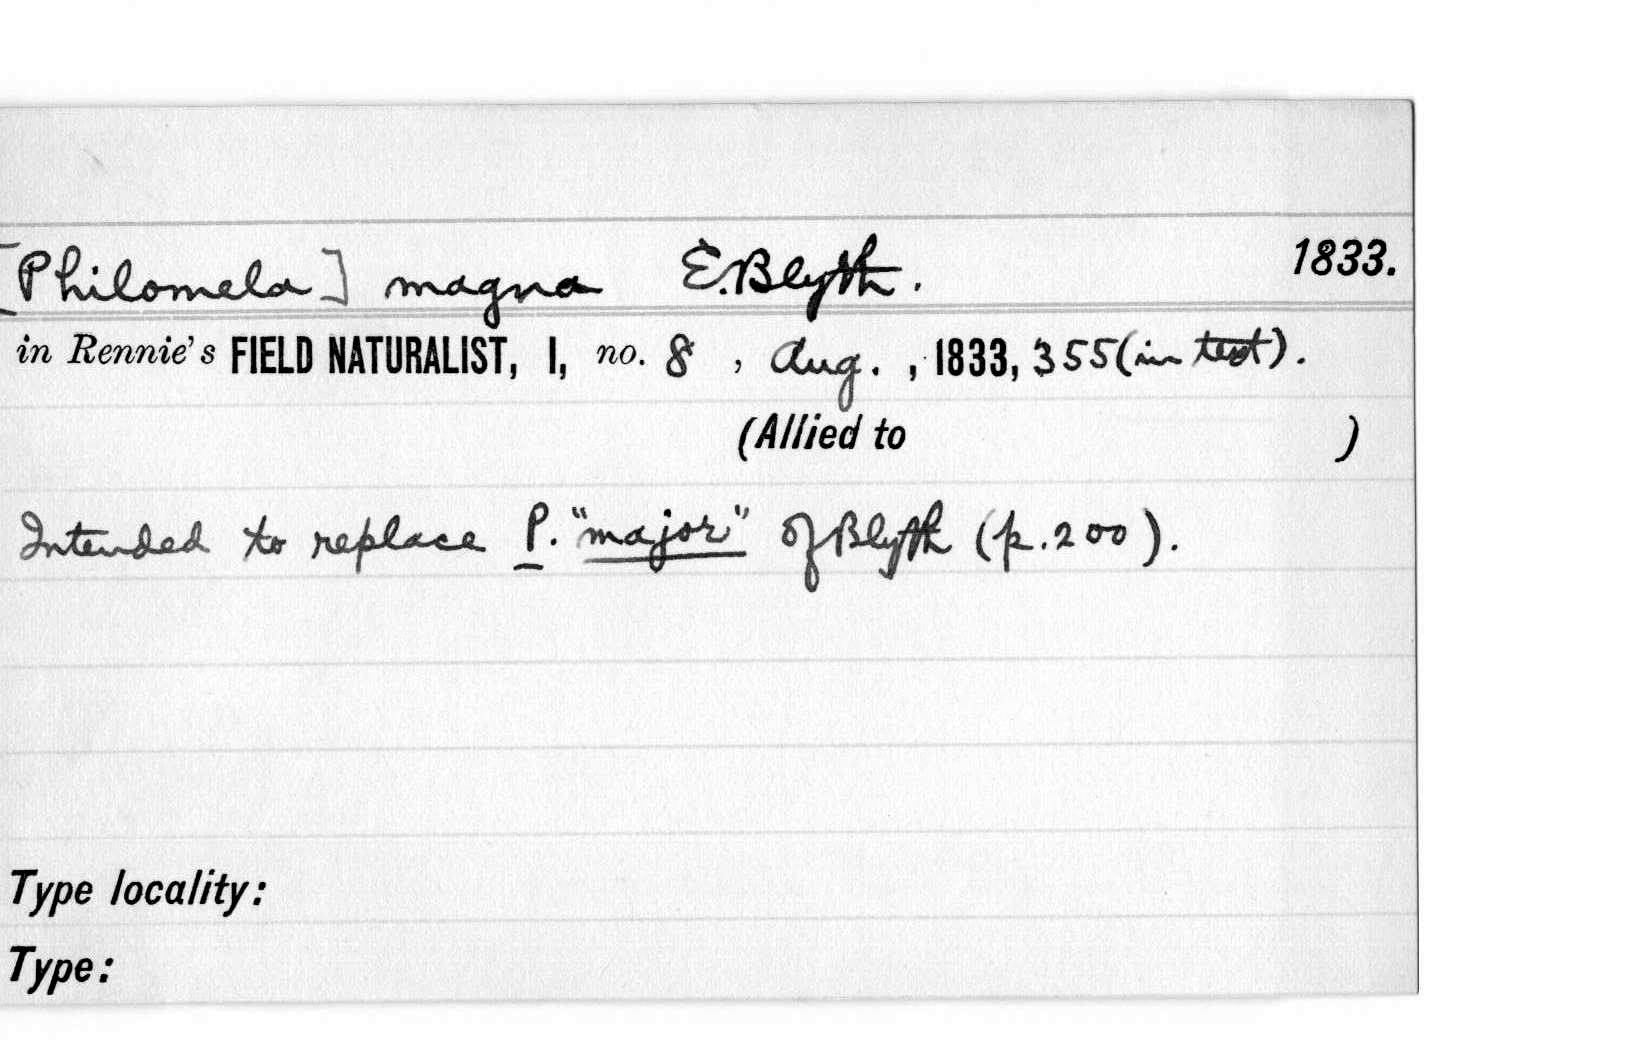 [Philomela] magna E. Blyth. 1833.
in Rennie's FIELD NATURALIST, I, no. 8 , Aug. , 1833, 355 (in text).
(Allied to )
Intended to replace P. "major" of Blyth (p. 200).
Type locality:
Type: